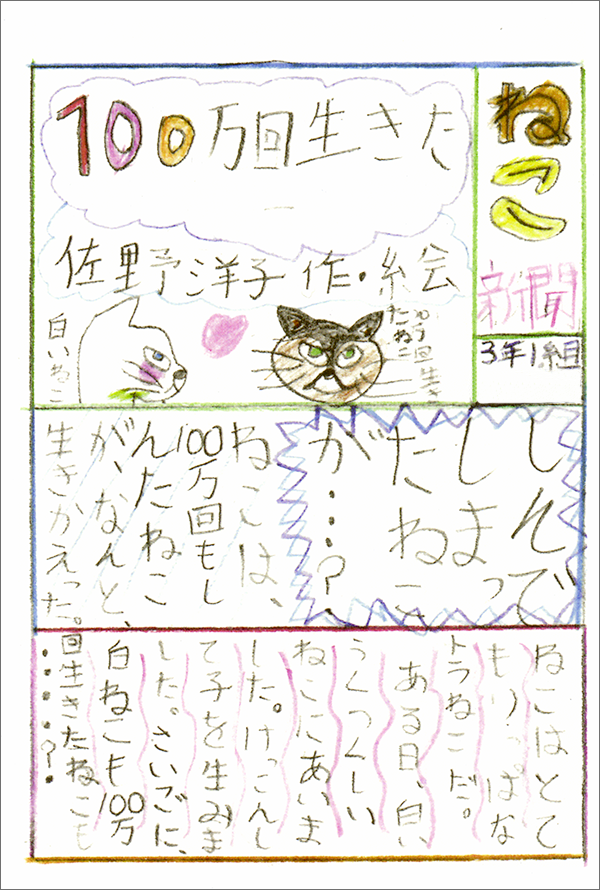 ねこ
新聞
3年1組
100万回生きた
佐野洋子 作・絵
100万回生き
たねこ
白いねこ
しんで
しまっ
たねこ
が…?
ねこは、
100万回もし
んたねこ
が、なんと、
生きかえった。
ねこはとて
もりっぱな
トラねこだ。
ある日、白い
うつくしい
ねこにあいま
した。けっこんし
て子を生みま
した。さいごに、
白ねこも100万
回生きたねこも
……?